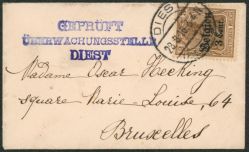 GEPRÜFT
ÜBERWACHUNGSSTELLE
DIEST
DIEST
Belgien
3 Cent.
Madame Oscar Heeking
square Marie-Louise, 64
Bruxelles